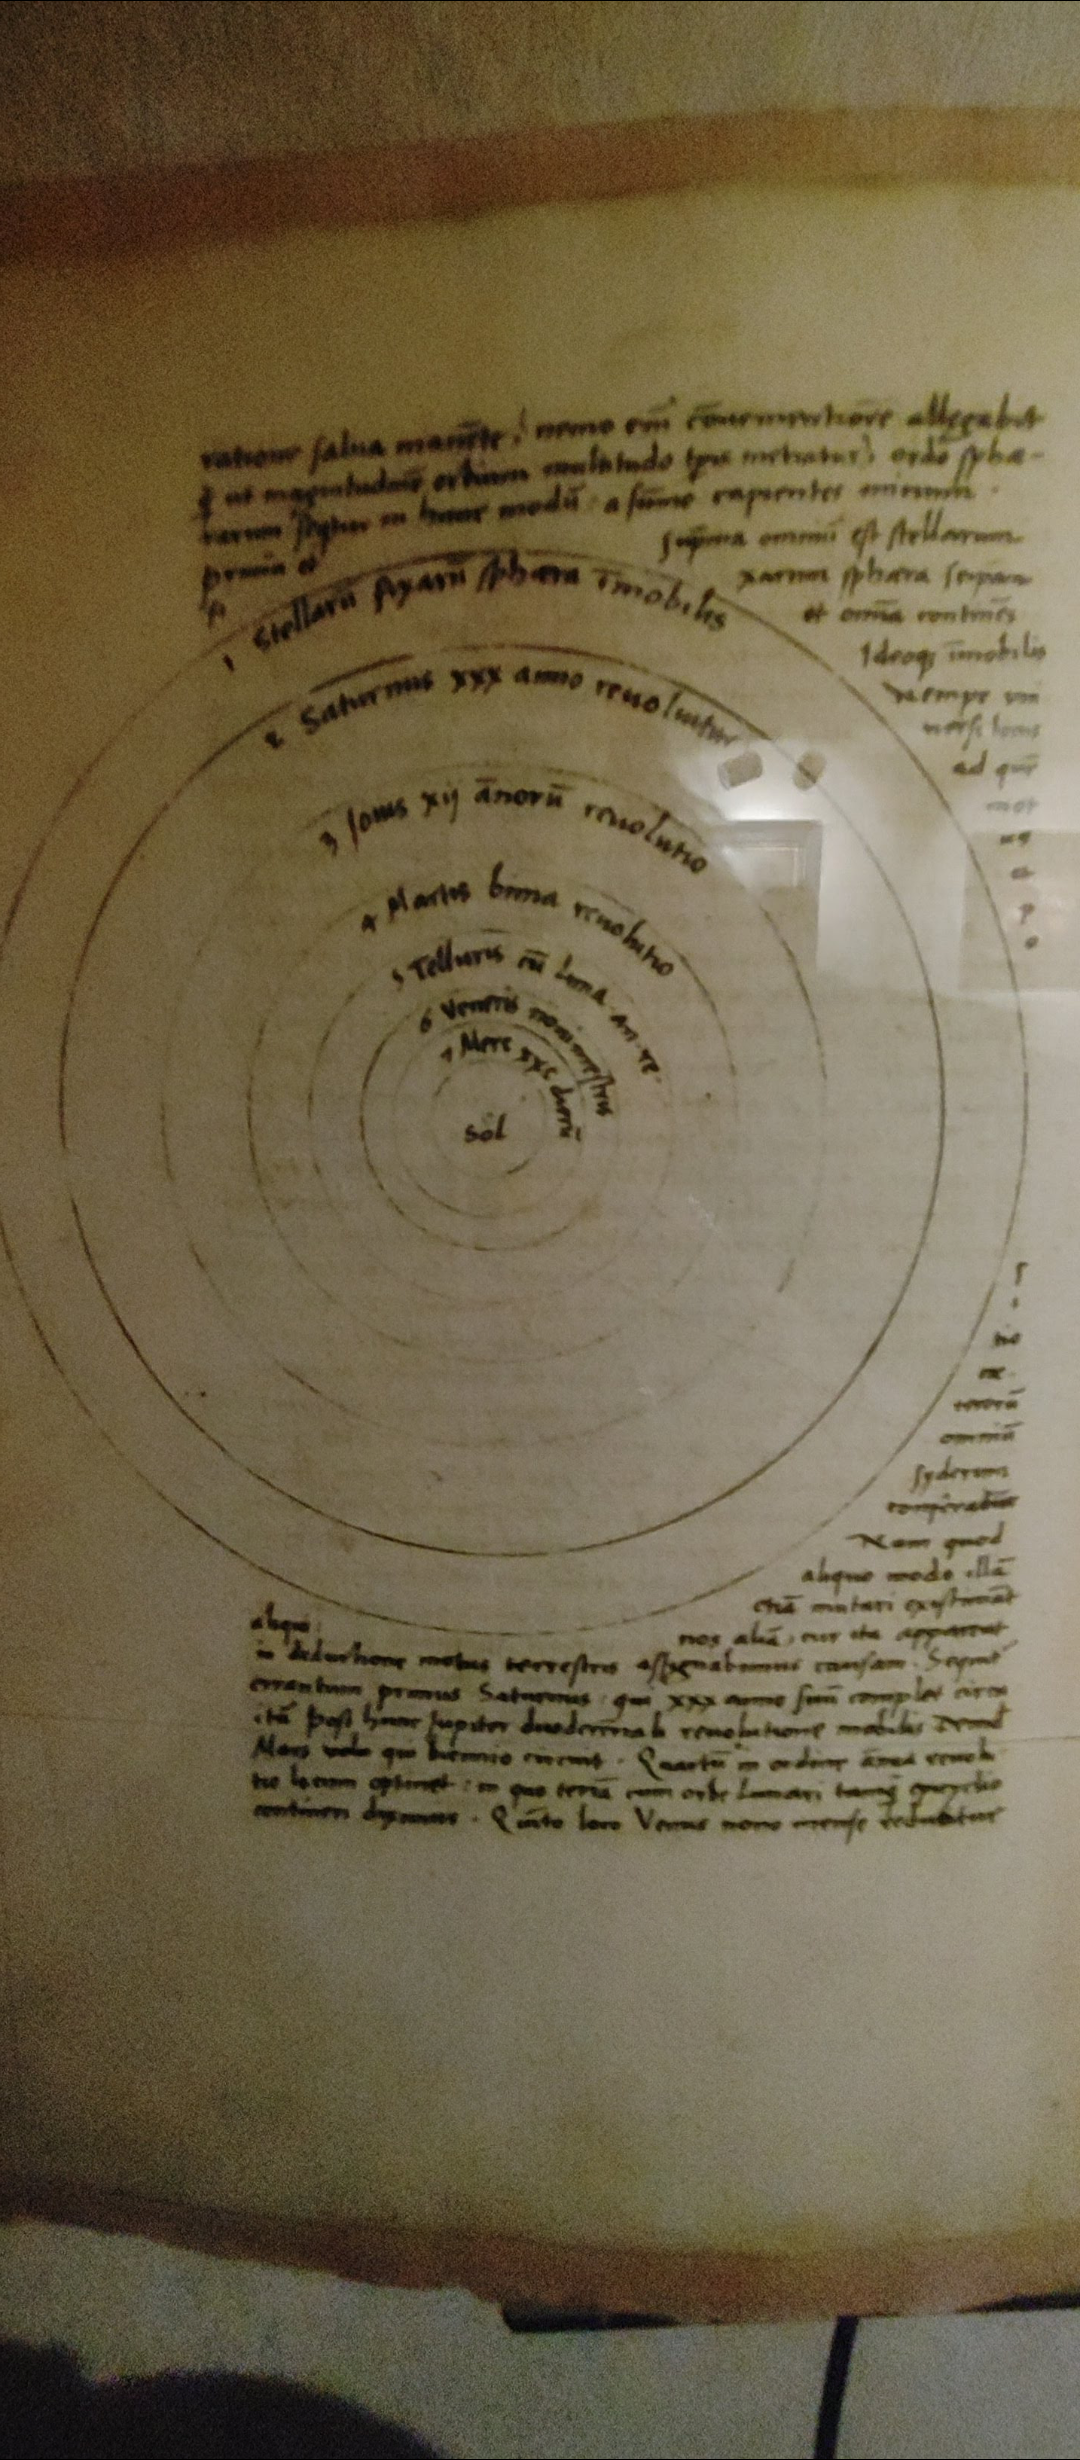 ratione salua manēte, nemo em̄ cōuenientiorē allegabit
q̄ ut magnitudinē orbium multitudo tp̄is metiatur, ordo sphæ-
rarum seqtur in hunc modū: a sūmo capientes initium.
prima et suprema omniū est stellarum
fi xarum sphæra seipam
et omīa continēs
Ideoq; īmobilis
nempe uni
uersi locus
ad quē
mot
us
et
p
o
1 Stellarū fixarū sphæra īmobilis
2 Saturnus xxx anno reuoluitur
3 Iouis xij ānorū reuolutio
4 Martis bima reuolutio
5 Telluris cū Luna an. re.
6 Veneris nonimestris
7 Merc xxc dierū
Sol
s
i
tio
ce
terorū
omniū
syderum
conferatur
Nam quod
aliquo modo illā
etiā mutari existimāt
aliqui: nos aliā, cur ita appareat
in deductione motus terrestris assignabimus causam. Sequit
errantium primus Saturnus: qui xxx anno suū complet circu
itū post hunc Iupiter duodecēnali reuolutione mobilis Deind
Mars qui biennio circuit. Quartū in ordine ānua reuolu
tio locum optinet: in quo terrā cum orbe Lunari tanq epicyclio
contineri diximus. Quīto loco Venus nono mense reducitur